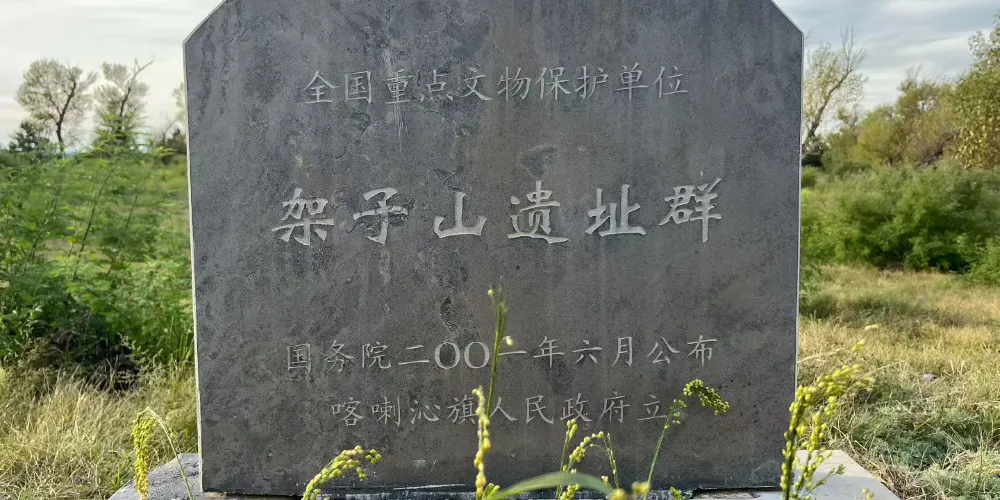 全国重点文物保护单位
架子山遗址群
国务院二〇〇一年六月公布
喀喇沁旗人民政府立